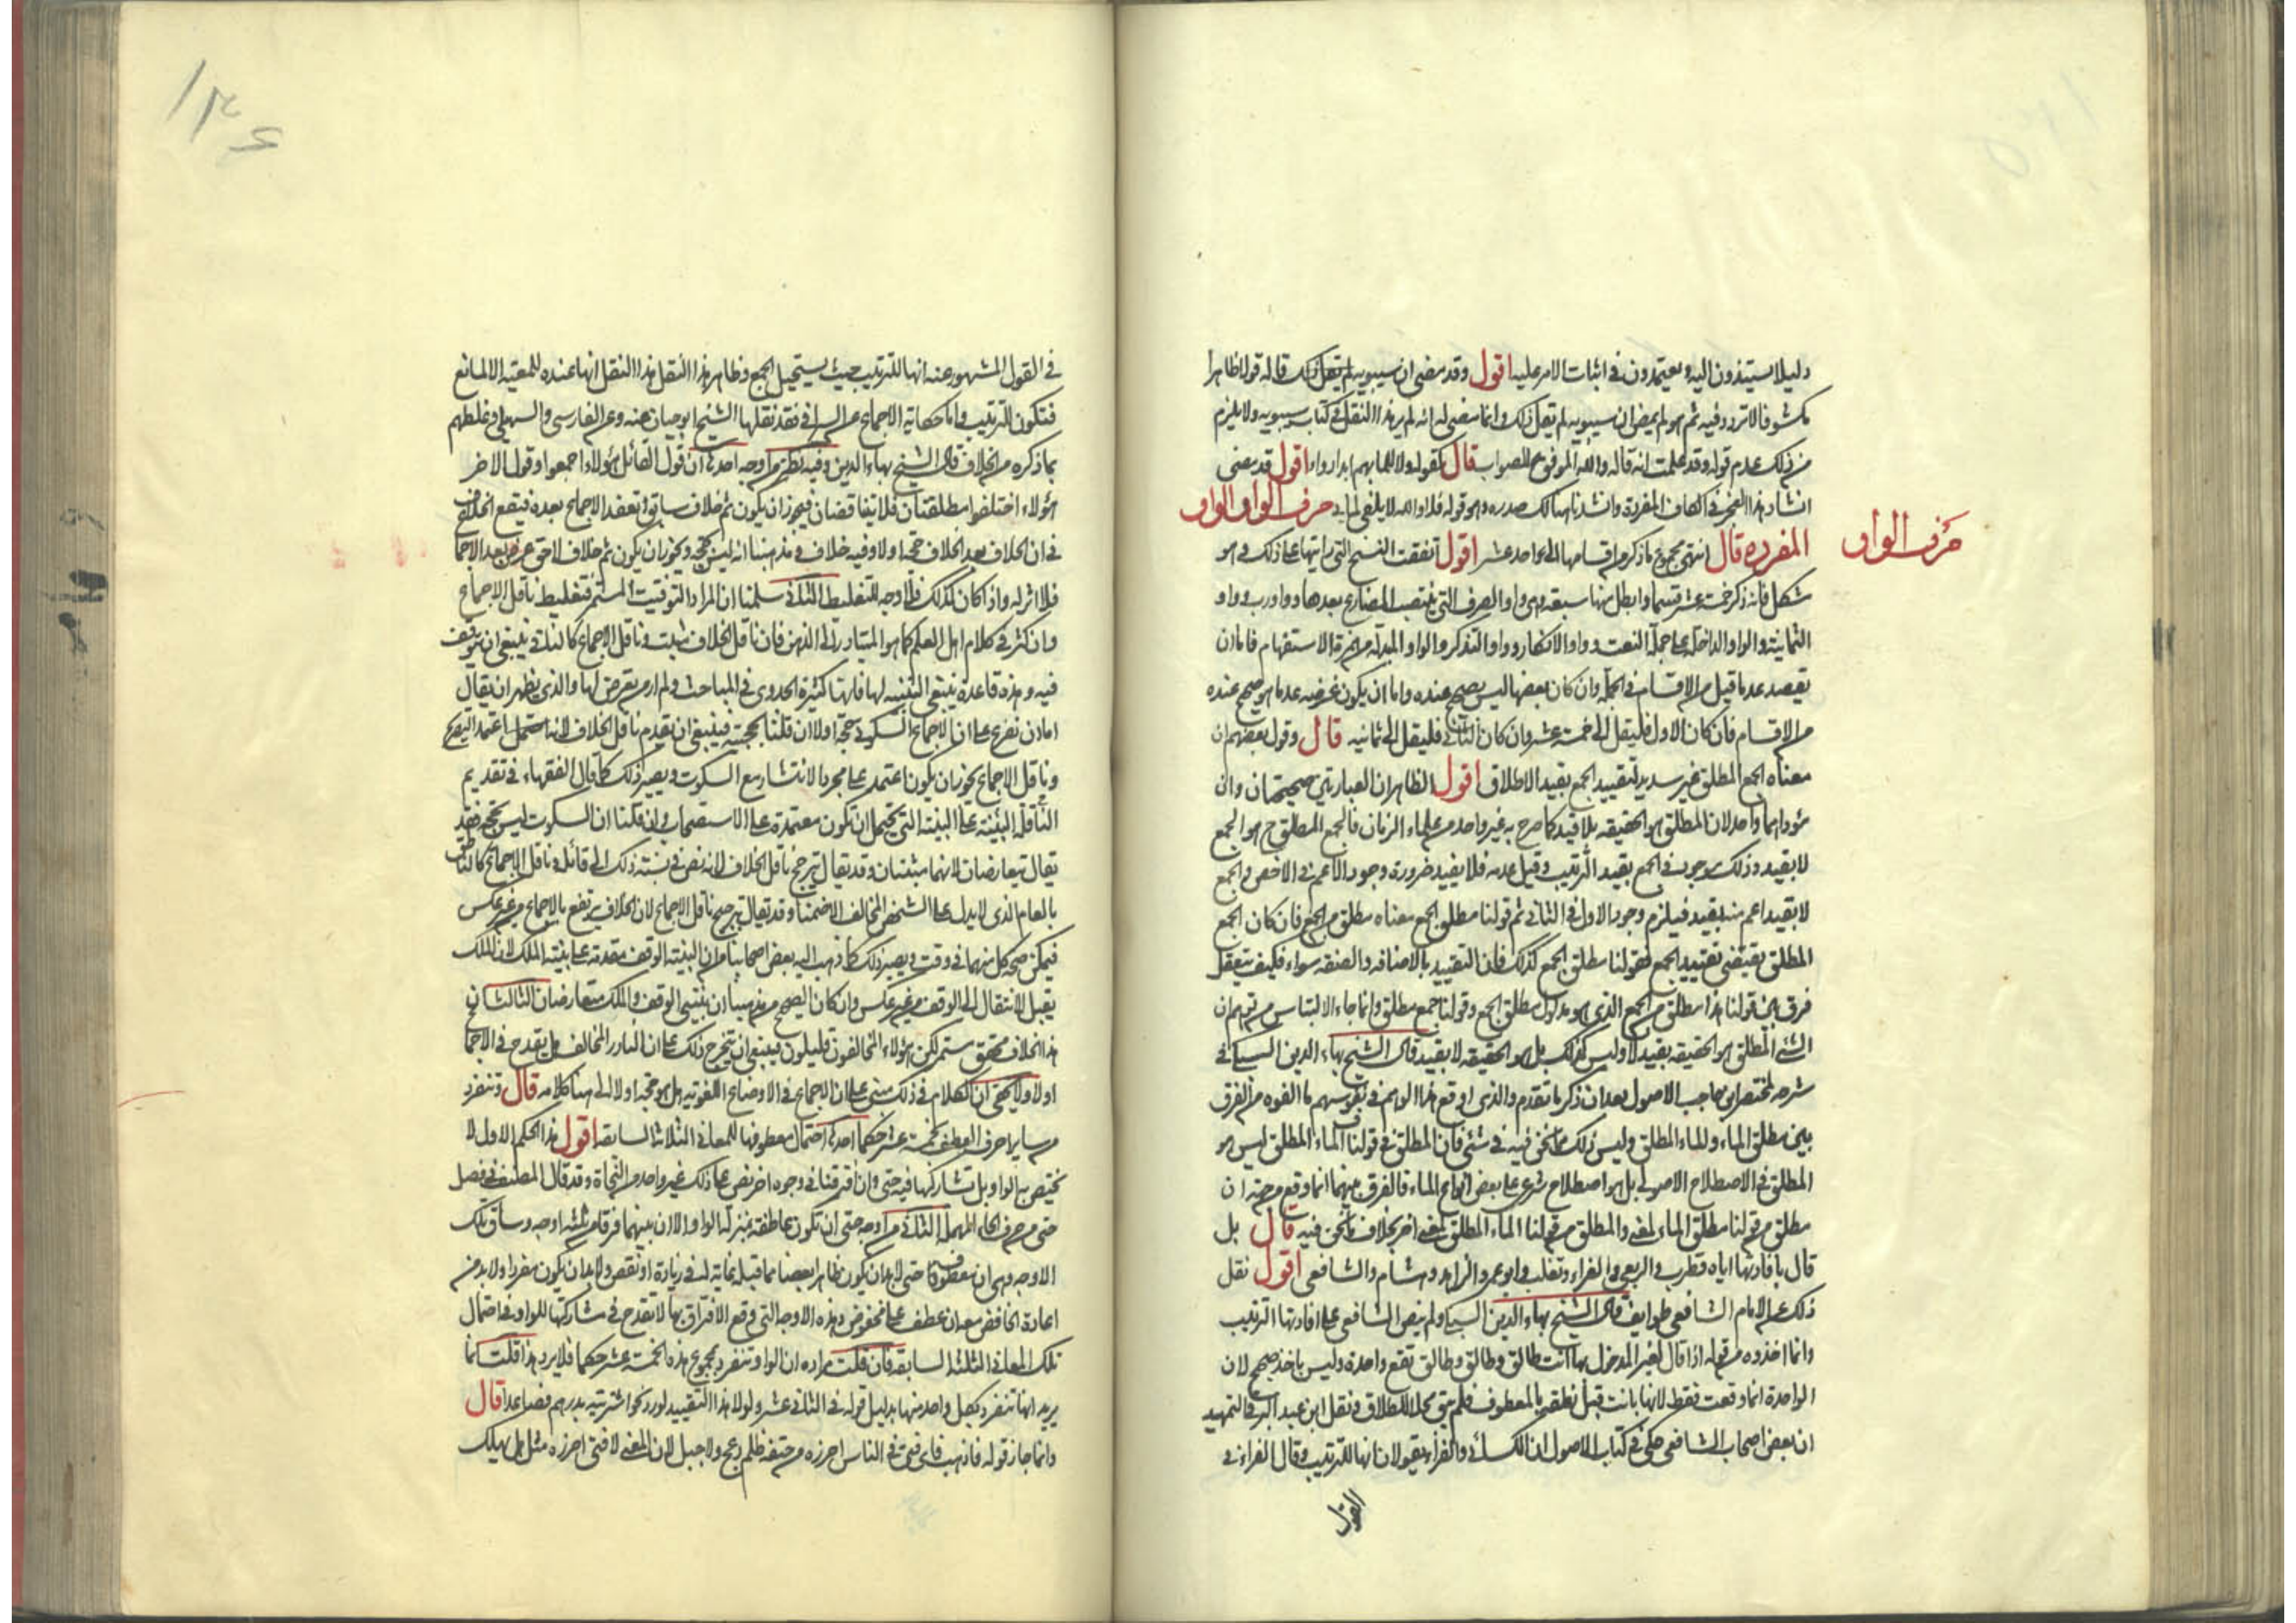 دليلا يستندون اليه ويعتمدون في اثبات الامر عليه اقول وقد مضى ان سيبويه لم يقل ذلك قاله قولا ظاهرا
مكشوفا لا تردد فيه ثم هو لم يمض ان سيبويه لم يقل ذلك وانما مضى له انه لم ير هذا النقل في كتاب سيبويه ولا يلزم
من ذلك عدم قوله وقد علمت انه قاله والله الموفق للصواب قال كقوله ولا للما بهم ابدا دواء اقول قد مضى
انشاد هذا العجز في الكاف المفردة وانشدنا هنالك صدره وهو قوله فلا والله لا يلفى لما بي حرف الواو الواو
حرف الواو
المفردة قال انتهى مجموع ما ذكر من اقسامها الى احد عشر اقول اتفقت النسخ التي رايتها على ذلك وهو
مشكل فانه ذكر خمسة عشر قسما وابطل منها سبعة وهي واو الصرف التي ينتصب المضارع بعدها وواو رب وواو
الثمانية والواو الداخلة على جملة النعت وواو الانكار وواو التذكر والواو المبدلة من همزة الاستفهام فاما ان
يقصد عد ما قيل من الاقسام في الجملة وان كان بعضها ليس بصحيح عنده واما ان يكون غرضه عد ما هو صحيح عنده
من الاقسام فان كان الاول فليقل الى خمسة عشر وان كان الثاني فليقل الى ثمانية قال وقول بعضهم ان
معناه الجمع المطلق غير سديد لتقييد الجمع بقيد الاطلاق اقول الظاهر ان العبارتين صحيحتان وان
مؤداهما واحد لان المطلق هو الحقيقة بلا قيد كما صرح به غير واحد من علماء الزمان فالجمع المطلق ح هو الجمع
لا بقيد وذلك موجود في الجمع بقيد الترتيب وقيل عدمه فلا يفيد ضرورة وجود الاعم في الاخص والجمع
لا بقيد اعم منه بقيد فيلزم وجود الاول في الثاني ثم قولنا مطلق الجمع معناه مطلق من الجمع فان كان الجمع
المطلق يقتضي تقييد الجمع فقولنا مطلق الجمع كذلك فان التقييد بالاضافة والصفة سواء فكيف يتعقل
فرق بين قولنا هذا مطلق من الجمع الذي هو مدلول مطلق الجمع وقولنا جمع مطلق وانما جاء الالتباس من توهم ان
الشي المطلق هو الحقيقة بقيد لا وليس كذلك بل هو الحقيقة لا بقيد قال الشيخ بهاء الدين السبكي في
شرحه لمختصر ابن حاجب الاصول بعد ان ذكر ما تقدم والذي اوقع هذا الوهم في نفوسهم ما الفوه من الفرق
بين مطلق الماء والماء المطلق وليس ذلك مما نحن فيه في شي فان المطلق في قولنا الماء المطلق ليس هو
المطلق في الاصطلاح الاصولي بل هو اصطلاح شرعي على بعض انواع الماء فالفرق بينهما انما وقع من جهة ان
مطلق من قولنا مطلق الماء لمعنى والمطلق من قولنا الماء المطلق لمعنى اخر بخلاف ما نحن فيه قال بل
قال بافادتها اياه قطرب والربعي والفراء وثعلب وابو عمر والزاهد وهشام والشافعي اقول نقل
ذلك عن الامام الشافعي طوايف قال الشيخ بهاء الدين السبكي ولم ينص الشافعي على افادتها الترتيب
وانما اخذوه من قوله اذا قال لغير المدخول بها انت طالق وطالق وطالق تقع واحدة وليس باخذ صحيح لان
الواحدة انما وقعت فقط لانها بانت قبل نطقه بالمعطوف فلم تبق محلا للطلاق ونقل ابن عبد البر في التمهيد
ان بعض اصحاب الشافعي حكى في كتاب الاصول ان الكسائي والفراء يقولان انها للترتيب وقال الفراء في
القول
١٣٤
في القول المشهور عنه انها للترتيب حيث يستحيل الجمع وظاهر هذا النقل هذا النقل انها عنده للمعية الا لمانع
فتكون للترتيب واما حكاية الاجماع عن السيرافي فقد نقلها الشيخ ابو حيان عنه وعن الفارسي والسهيلي وغلطهم
بما ذكره من الخلاف قال الشيخ بهاء الدين وفيه نظر من اوجه احدها ان قول القائل هؤلاء اجمعوا وقول الاخر
هؤلاء اختلفوا مطلقتان فلا يتناقضان فيجوز ان يكون ثم خلاف سابق وتعقد الاجماع بعده فيقع الخلاف
في ان الخلاف بعد الخلاف حجة اولا وفيه خلاف ومذهبنا انه ليس بحجة ويجوز ان يكون ثم خلاف لاحق عرض بعد الاجما
فلا اثر له واذا كان كذلك فلا وجه للتغليط الثاني سلمنا ان المراد التوقيت المستمر فتغليط ناقل الاجماع
وان كثر في كلام اهل العلم كما هو المتبادر الى الذهن فان ناقل الخلاف مثبت وناقل الاجماع كالنافي ينبغي ان يتوقف
فيه وهذه قاعدة ينبغي التنبه لها فانها كثيرة الجدوى في المباحث ولم ار من تعرض لها والذي يظهر ان يقال
اما ان نفرع على ان الاجماع السكوتي حجة اولا ان قلنا بحجيته فينبغي ان يقدم ناقل الخلاف لانه احتمل اعتمد التصريح
وناقل الاجماع يجوز ان يكون اعتمد على مجرد الانتشار مع السكوت ويصير ذلك كما قال الفقهاء في تقديم
الناقلة البينة على البينة التي يحتمل ان تكون معتمدة على الاستصحاب وان قلنا ان السكوت ليس بحجة فقد
يقال يتعارضان لانهما مثبتتان وقد يقال يترجح ناقل الخلاف لانه نص في نسبته ذلك الى قائل وناقل الاجماع كالناطق
بالعام الذي لا يدل على الشخص المخالف الا ضمنا وقد يقال يترجح ناقل الاجماع لان الخلاف يرتفع بالاجماع من غير عكس
فيمكن صحة كل منهما في وقت ويصير ذلك كما ذهب اليه بعض اصحابنا من ان البينة الوقف مقدمة على بينة الملك لان الملك
يقبل الانتقال الى الوقف من غير عكس وان كان الصحيح من مذهبنا ان بينتي الوقف والملك متعارضان الثالث ان
هذا الخلاف محقق مستمر لكن هؤلاء المخالفون قليلون فينبغي ان يتخرج ذلك على ان النادر المخالف هل يقدح في الاجما
اولا ولا يخفى ان الكلام في ذلك مبني على ان الاجماع في الاوضاع اللغوية هل هو حجة اولا الى هنا كلامه قال وتنفرد
من ساير احرف العطف بخمسة عشر حكما احدها احتمال معطوفها للمعاني الثلاثة السابقة اقول هذا الحكم الاول لا
يختص به الواو بل تشاركها فيه حتى وان افترقتا في وجوه اخر نص على ذلك غير واحد من النحاة وقد قال المصنف في فصل
حتى من حرف الحاء المهملة الثاني من اوجه حتى ان تكون عاطفة بمنزلة الواو الا ان بينهما فرقا من ثلثة اوجه وساق تلك
الاوجه وهي ان معطوف حتى لا بد ان يكون ظاهرا بعضا مما قبله غاية له في زيادة او نقص ولا بد ان يكون مفردا ولا بد من
اعادة الخافض معه ان عطف على مخفوض وهذه الاوجه التي وقع الافتراق بها لا تقدح في مشاركتها للواو في احتمال
تلك المعاني الثلثة السابقة فان قلت مراده ان الواو تنفرد بمجموع هذه الخمسة عشر حكما فلا يرد هذا قلت انما
يريد انها تنفرد بكل واحد منها بدليل قوله في الثاني عشر ولولا هذا التقييد لورد نحو اشتريته بدرهم فصاعدا قال
وانما جاز قوله فاذهب فاي فتى في الناس احرزه من حتفه ظلم دعج ولا جبل لان المعنى لا فتى احرزه مثل هل يهلك